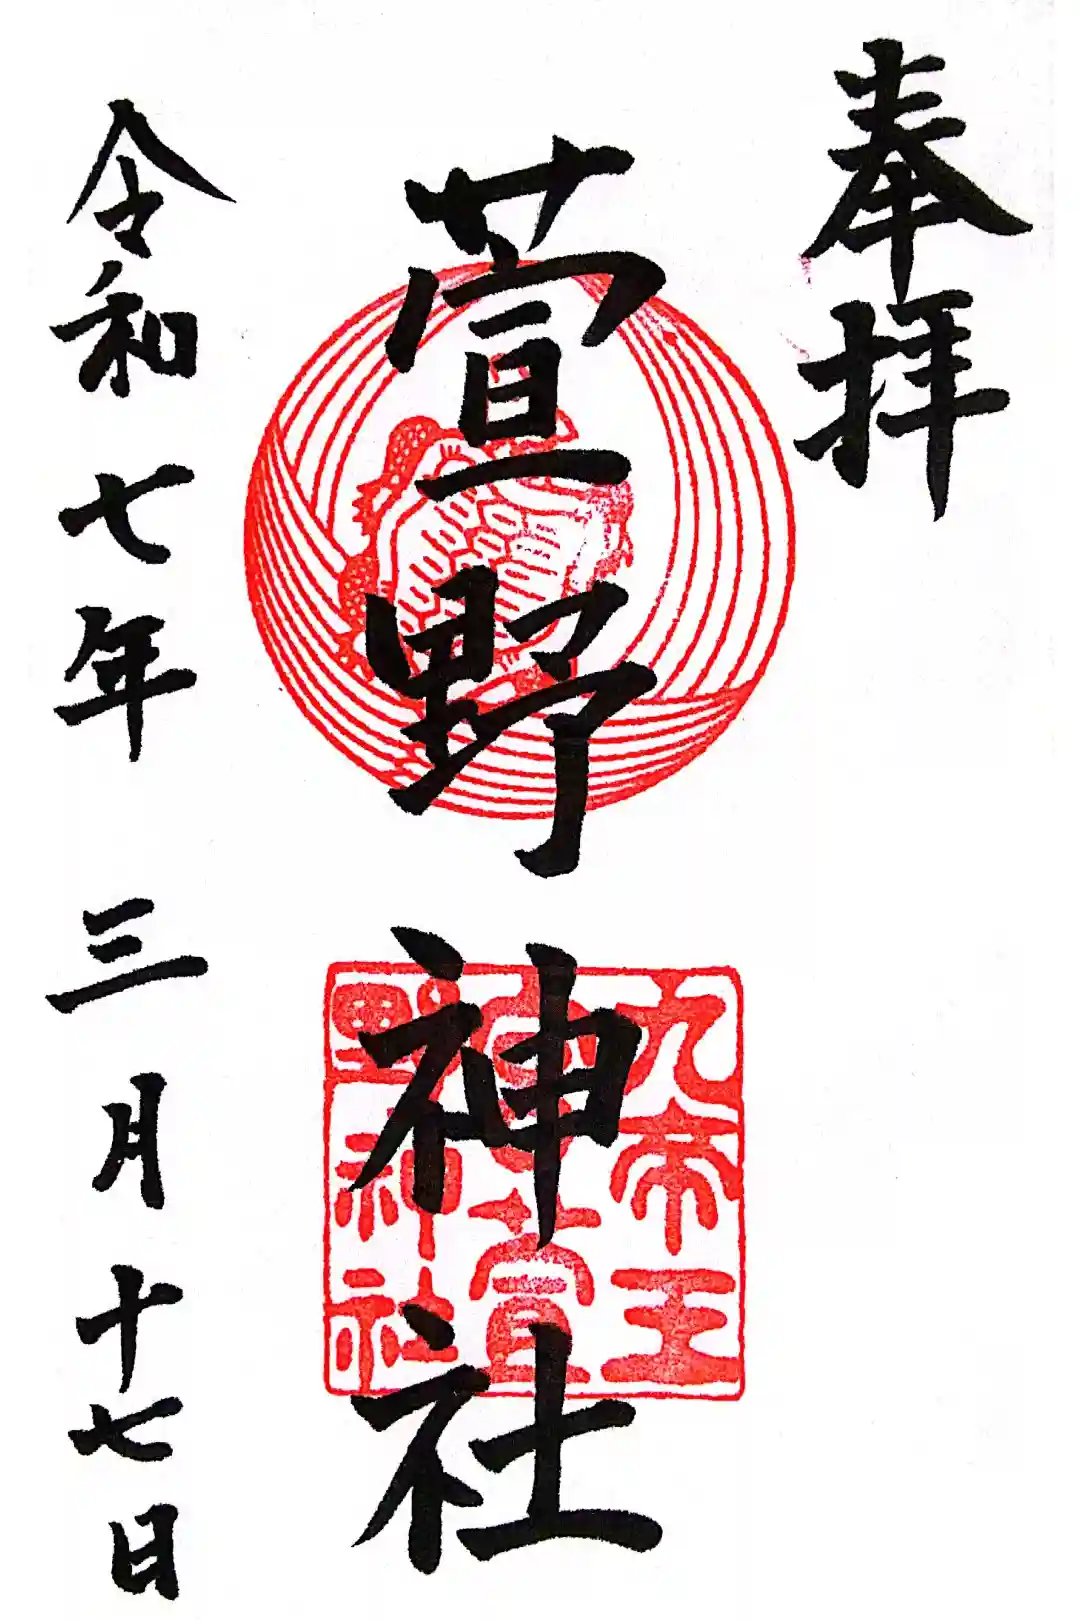 奉拝
萱野神社
令和七年三月十七日
九帝王
野神社